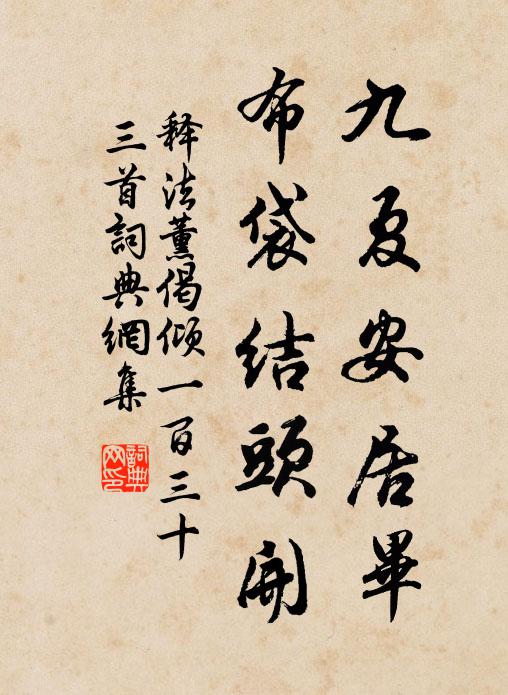 九夏安居畢
布袋結頭開
释法薰偈倾一百三十
三首詞典網集
詞典
网印